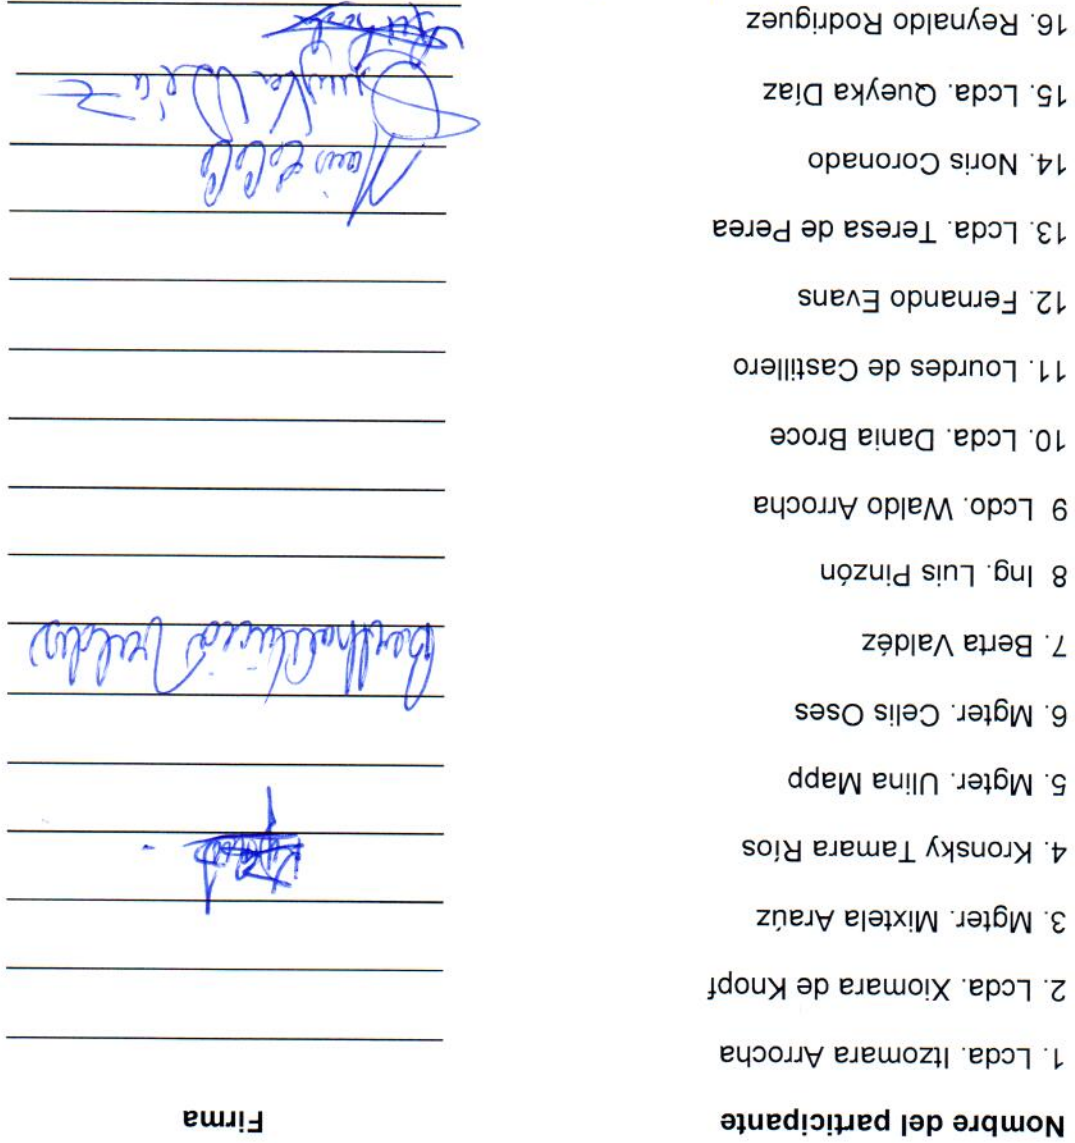 Nombre del participante Firma
1. Lcda. Itzomara Arrocha
2. Lcda. Xiomara de Knopf
3. Mgter. Mixtela Araúz
4. Kronsky Tamara Ríos
5. Mgter. Ulina Mapp
6. Mgter. Celis Oses
7. Berta Valdéz Bertha Alicia Valdés
8 Ing. Luis Pinzón
9 Lcdo. Waldo Arrocha
10. Lcda. Dania Broce
11. Lourdes de Castillero
12. Fernando Evans
13. Lcda. Teresa de Perea
14. Noris Coronado
15. Lcda. Queyka Díaz Queyka Díaz
16. Reynaldo Rodriguez